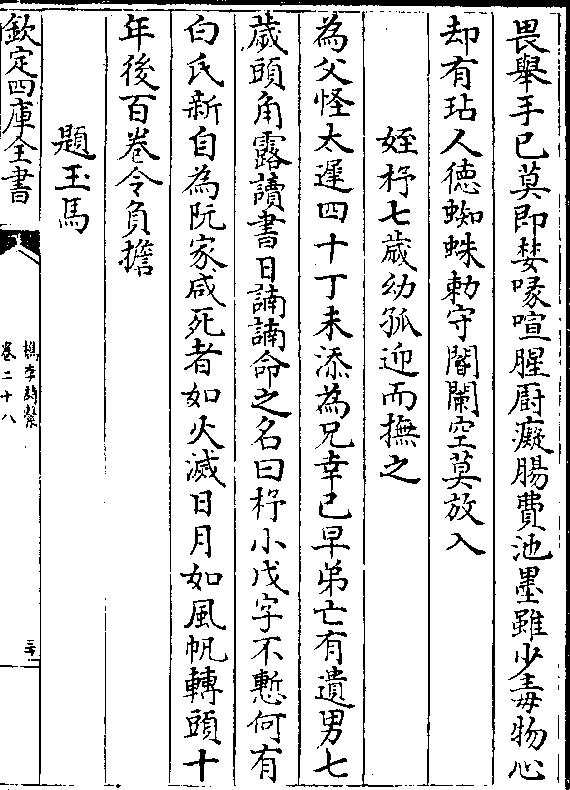 畏舉手已莫即婪喙喧腥厨癡腸費池墨雖少毒物心
却有玷人德蜘蛛勅守閽闌空莫放入
姪杼七歲幼孤迎而撫之
為父怪太遲四十丁未添為兄幸已早弟亡有遺男七
歲頭角露讀書日諵諵命之名曰杼小戊字不慙何有
白氏新自為阮家咸死者如火滅日月如風帆轉頭十
年後百卷令負擔
題玉馬
欽定四庫全書
檇李詩繫
卷二十八